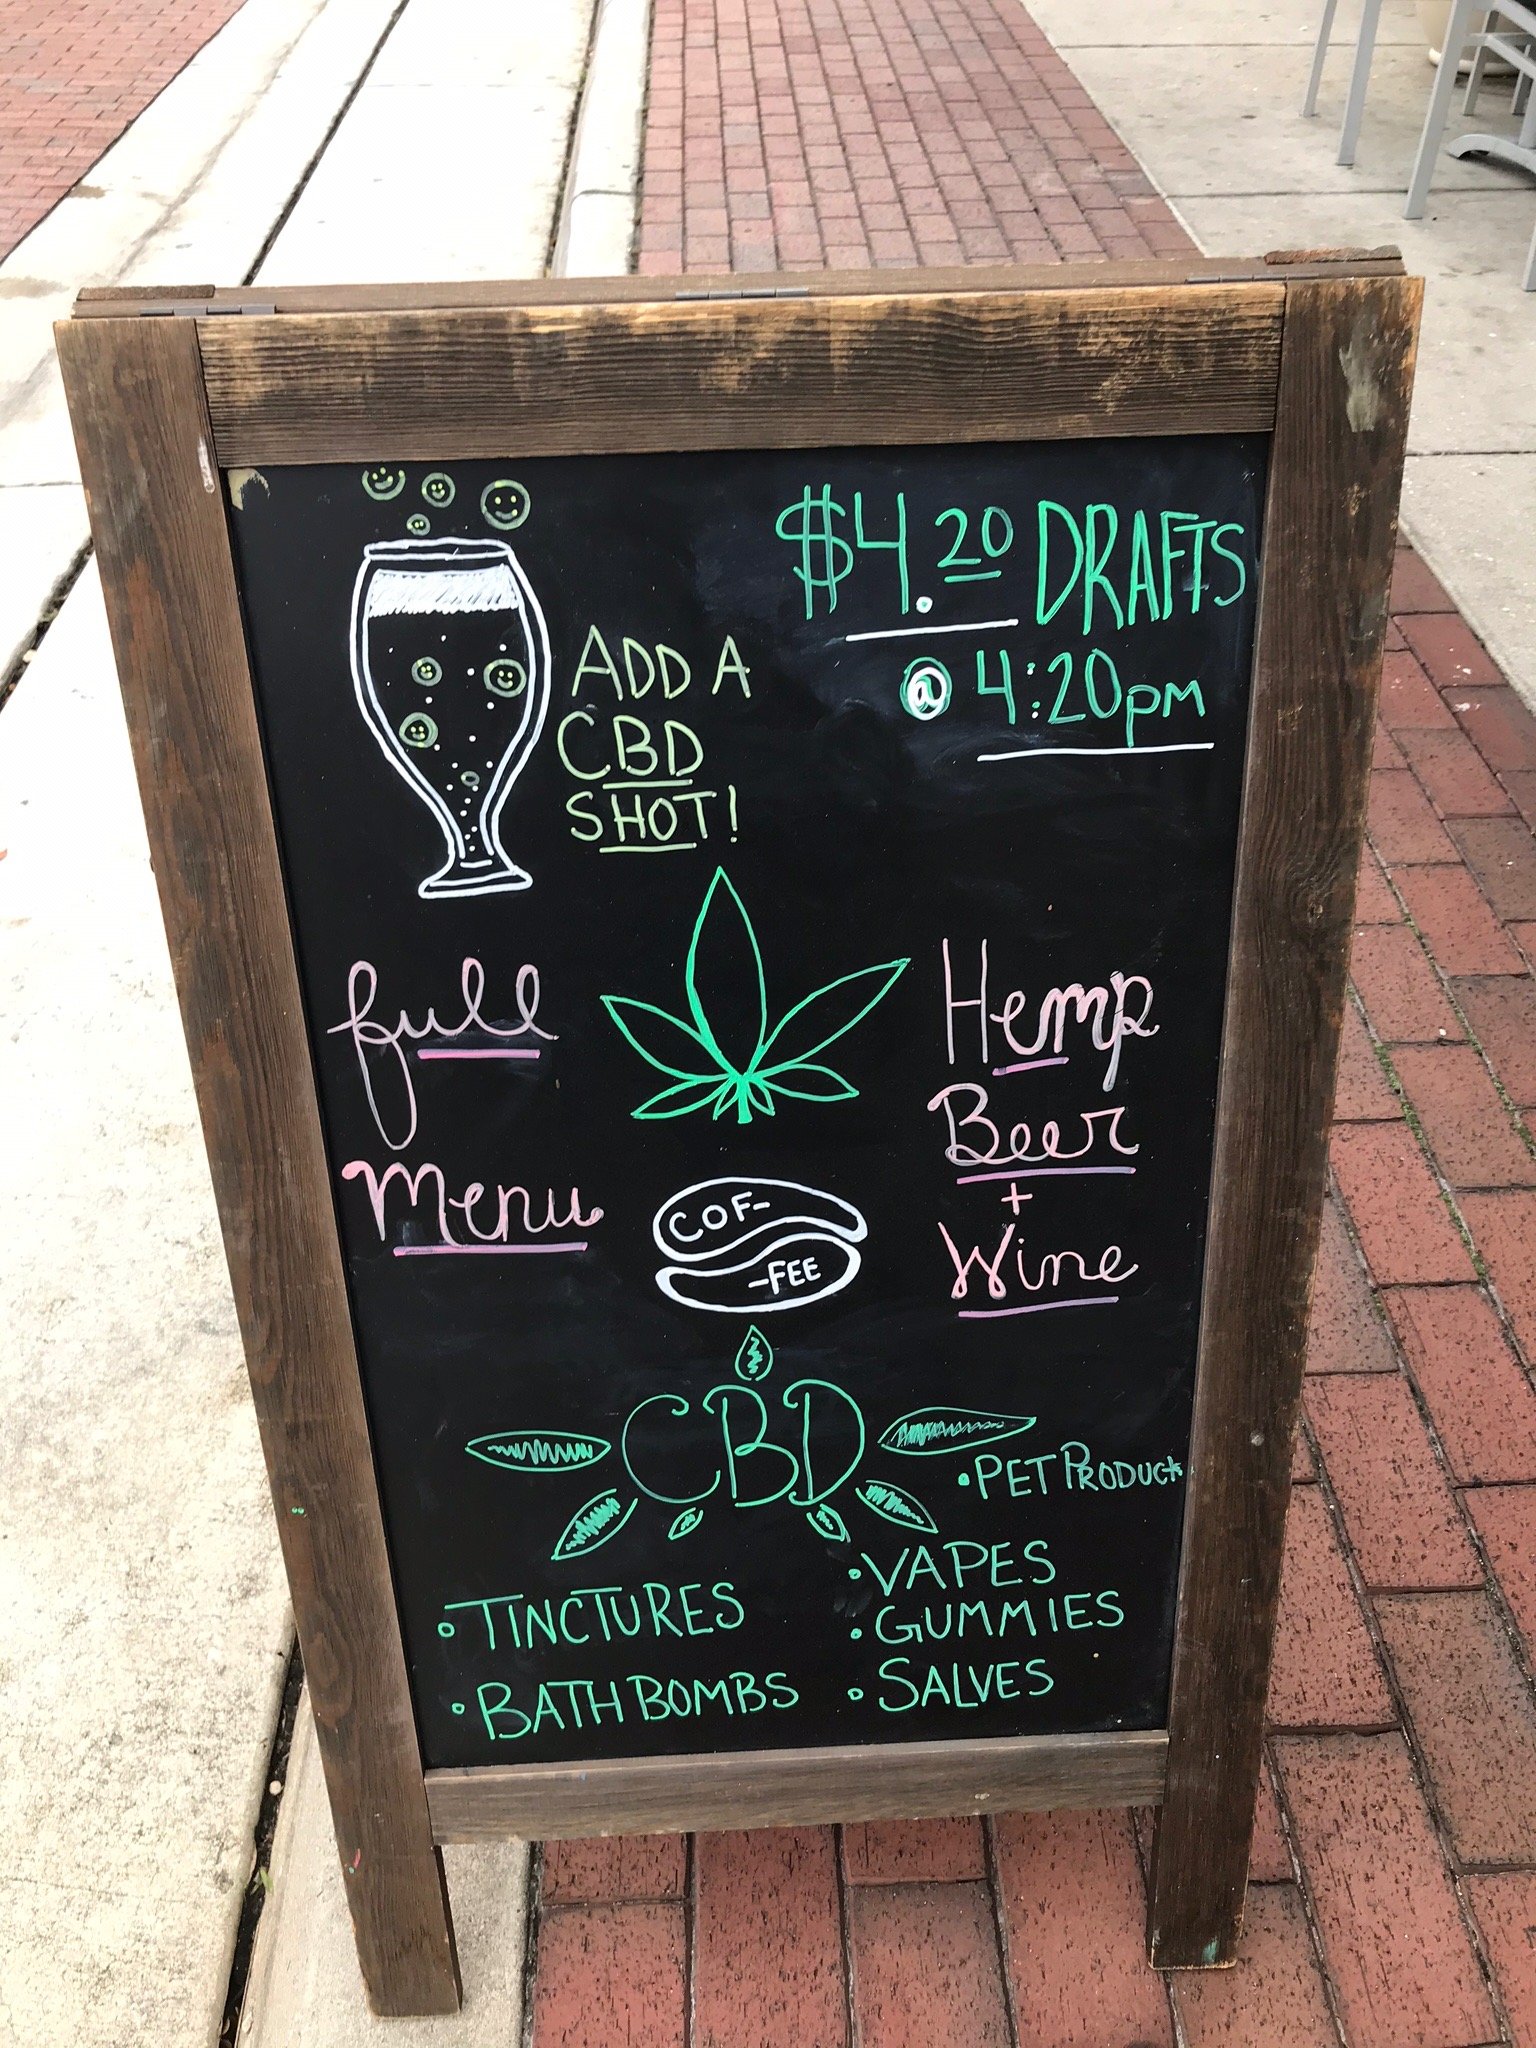 $4.20 DRAFTS
@ 4:20pm
ADD A
CBD
SHOT!
full
Menu
Hemp
Beer
+
Wine
COF-
-FEE
CBD
• PET PRODUCT
• TINCTURES
• BATH BOMBS
• VAPES
• GUMMIES
• SALVES